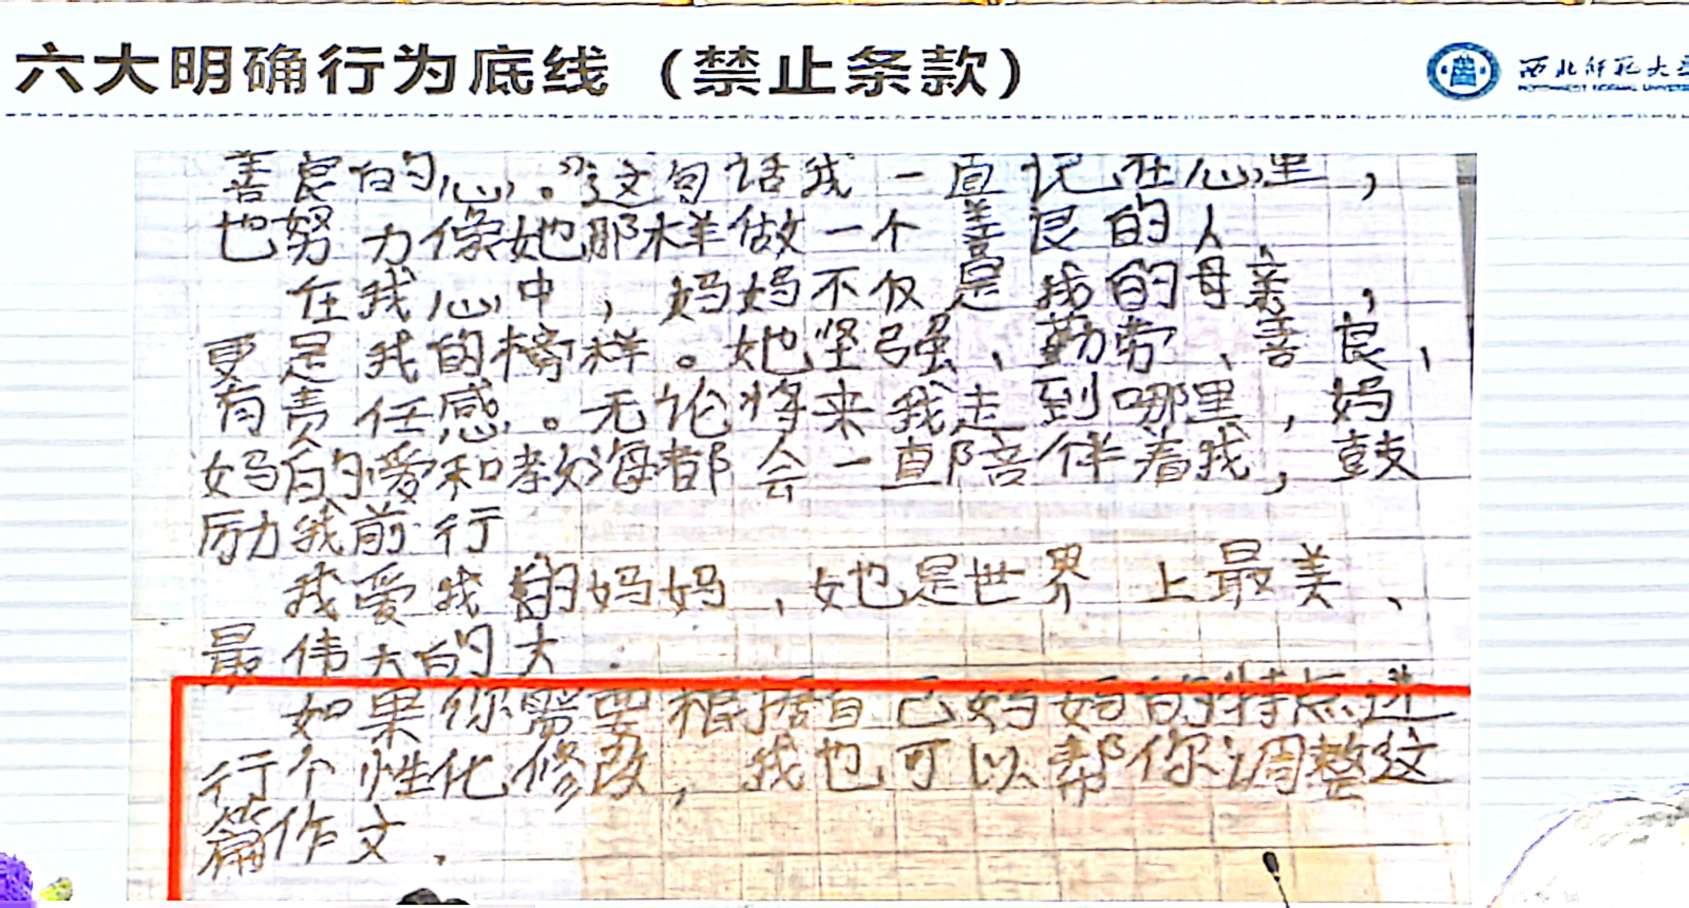 六大明确行为底线（禁止条款）
西北师范大学
NORTHWEST NORMAL UNIVERSITY
善良的心。”这句话我一直记在心里，
也努力像她那样做一个善良的人、
在我心中，妈妈不仅是我的母亲，
更是我的榜样。她坚强、勤劳、善良、
有责任感。无论将来我走到哪里，妈
妈的爱和教诲都会一直陪伴着我，鼓
励我前行
我爱我的妈妈、她是世界上最美、
最伟大的大.
如果你需要根据自己妈妈的特点进
行个性化修改，我也可以帮你调整这
篇作文.